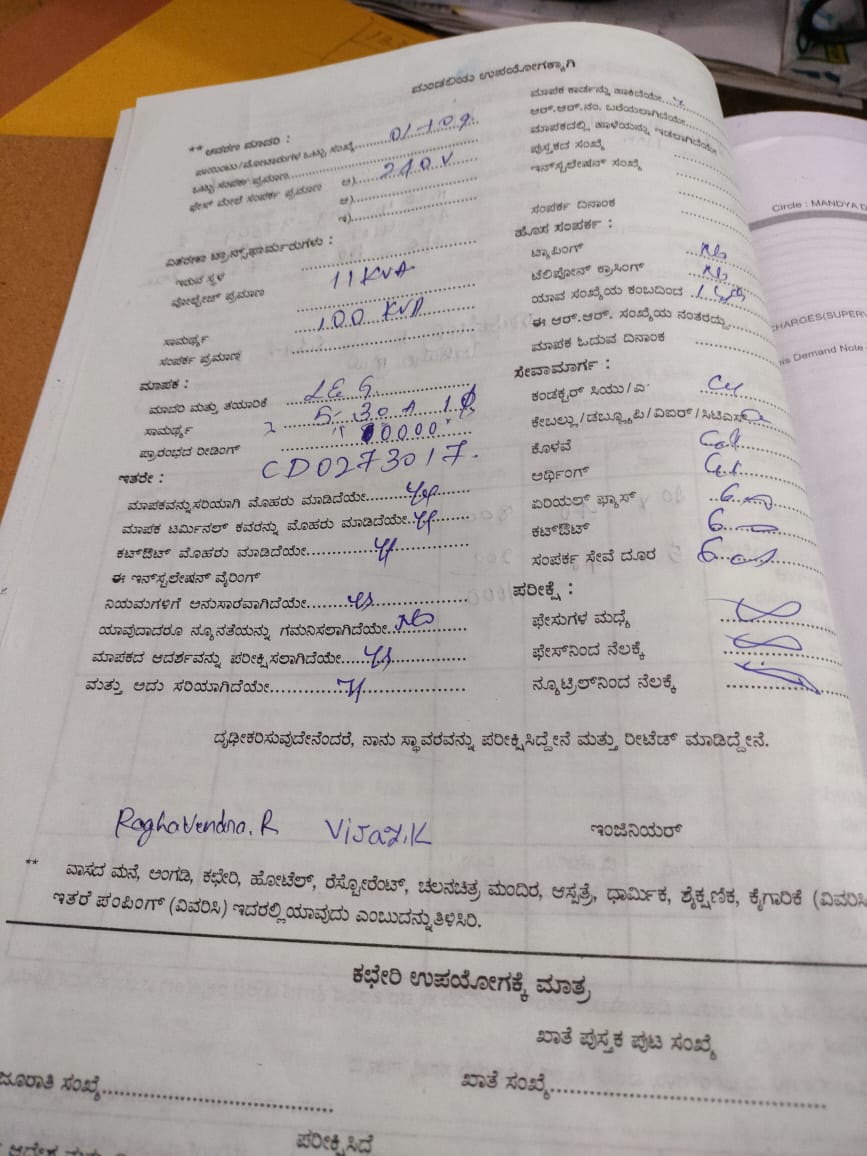 ಮಂಡಲಿಯ ಉಪಯೋಗಕ್ಕಾಗಿ
** ಆವರಣ ಮಾದರಿ :
ಪಾಯಿಂಟು/ಮೋಟಾರುಗಳ ಒಟ್ಟು ಸಂಖ್ಯೆ
ಒಟ್ಟು ಸಂಪರ್ಕ ಪ್ರಮಾಣ
ಫೇಸ್ ಮೇಲೆ ಸಂಪರ್ಕ ಪ್ರಮಾಣ ಅ) 240 V
ಆ)
ಇ)
ವಿತರಣಾ ಟ್ರಾನ್ಸ್‌ಫಾರ್ಮರುಗಳು :
ಇರುವ ಸ್ಥಳ
ವೋಲ್ಟೇಜ್ ಪ್ರಮಾಣ 11 KVA
ಸಾಮರ್ಥ್ಯ 100 KVA
ಸಂಪರ್ಕ ಪ್ರಮಾಣ
ಮಾಪಕ :
ಮಾದರಿ ಮತ್ತು ತಯಾರಿಕೆ
ಸಾಮರ್ಥ್ಯ 5-30 A 1 ϕ
ಪ್ರಾರಂಭದ ರೀಡಿಂಗ್
ಇತರೇ : CD0273017.
ಮಾಪಕವನ್ನು ಸರಿಯಾಗಿ ಮೊಹರು ಮಾಡಿದೆಯೇ Yes
ಮಾಪಕ ಟರ್ಮಿನಲ್ ಕವರನ್ನು ಮೊಹರು ಮಾಡಿದೆಯೇ
ಕಟ್‌ಔಟ್ ಮೊಹರು ಮಾಡಿದೆಯೇ
ಈ ಇನ್‌ಸ್ಟಲೇಷನ್ ವೈರಿಂಗ್
ನಿಯಮಗಳಿಗೆ ಅನುಸಾರವಾಗಿದೆಯೇ yes
ಯಾವುದಾದರೂ ನ್ಯೂನತೆಯನ್ನು ಗಮನಿಸಲಾಗಿದೆಯೇ No
ಮಾಪಕದ ಆದರ್ಶವನ್ನು ಪರೀಕ್ಷಿಸಲಾಗಿದೆಯೇ Yes
ಮತ್ತು ಅದು ಸರಿಯಾಗಿದೆಯೇ
ಮಾಪಕ ಕಾರ್ಡನ್ನು ಹಾಕಿದೆಯೇ
ಆರ್.ಆರ್.ನಂ. ಬರೆಯಲಾಗಿದೆಯೇ
ಮಾಪಕದಲ್ಲಿ ಹಾಳೆಯನ್ನು ಇಡಲಾಗಿದೆಯೇ
ಪುಸ್ತಕದ ಸಂಖ್ಯೆ
ಇನ್‌ಸ್ಟಲೇಷನ್ ಸಂಖ್ಯೆ
ಸಂಪರ್ಕ ದಿನಾಂಕ
ಹೊಸ ಸಂಪರ್ಕ :
ಟ್ಯಾಪಿಂಗ್ No
ಟೆಲಿಫೋನ್ ಕ್ರಾಸಿಂಗ್ No
ಯಾವ ಸಂಖ್ಯೆಯ ಕಂಬದಿಂದ
ಈ ಆರ್.ಆರ್. ಸಂಖ್ಯೆಯ ನಂತರದ್ದು
ಮಾಪಕ ಓದುವ ದಿನಾಂಕ
ಸೇವಾಮಾರ್ಗ :
ಕಂಡಕ್ಟರ್ ಸಿಯು/ಎ
ಕೇಬಲ್ಲು/ಡಬ್ಲ್ಯೂಪಿ/ವಿಐಆರ್/ಸಿಟಿಎಸ್
ಕೊಳವೆ
ಅರ್ಥಿಂಗ್
ಏರಿಯಲ್ ಫ್ಯೂಸ್
ಕಟ್‌ಔಟ್
ಸಂಪರ್ಕ ಸೇವೆ ದೂರ
ಪರೀಕ್ಷೆ :
ಫೇಸುಗಳ ಮಧ್ಯೆ
ಫೇಸ್‌ನಿಂದ ನೆಲಕ್ಕೆ
ನ್ಯೂಟ್ರಿಲ್‌ನಿಂದ ನೆಲಕ್ಕೆ
ದೃಢೀಕರಿಸುವುದೇನೆಂದರೆ, ನಾನು ಸ್ಥಾವರವನ್ನು ಪರೀಕ್ಷಿಸಿದ್ದೇನೆ ಮತ್ತು ರೀಟೆಡ್ ಮಾಡಿದ್ದೇನೆ.
Raghavendra. R Vijay. K ಇಂಜಿನಿಯರ್
** ವಾಸದ ಮನೆ, ಅಂಗಡಿ, ಕಛೇರಿ, ಹೋಟೆಲ್, ರೆಸ್ಟೋರೆಂಟ್, ಚಲನಚಿತ್ರ ಮಂದಿರ, ಆಸ್ಪತ್ರೆ, ಧಾರ್ಮಿಕ, ಶೈಕ್ಷಣಿಕ, ಕೈಗಾರಿಕೆ (ವಿವರಿಸಿ
ಇತರೆ ಪಂಪಿಂಗ್ (ವಿವರಿಸಿ) ಇದರಲ್ಲಿ ಯಾವುದು ಎಂಬುದನ್ನು ತಿಳಿಸಿರಿ.
ಕಛೇರಿ ಉಪಯೋಗಕ್ಕೆ ಮಾತ್ರ
ಖಾತೆ ಪುಸ್ತಕ ಪುಟ ಸಂಖ್ಯೆ
ಜೂರಾತಿ ಸಂಖ್ಯೆ
ಖಾತೆ ಸಂಖ್ಯೆ
ಪರೀಕ್ಷಿಸಿದೆ
Circle : MANDYA D
CHARGES(SUPERV
his Demand Note